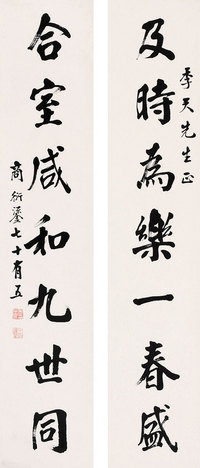 季天先生正
及時為樂一春盛
合室咸和九世同
商衍鎏七十有五